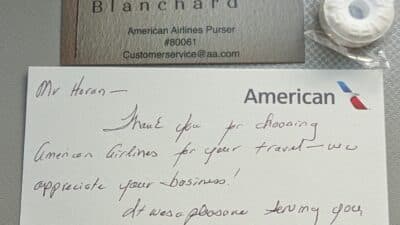 Blanchard
American Airlines Purser
#80061
Customerservice@aa.com
Mr Horan –
American
Thank you for choosing
American Airlines for your travel – we
appreciate your business!
It was a pleasure serving you,